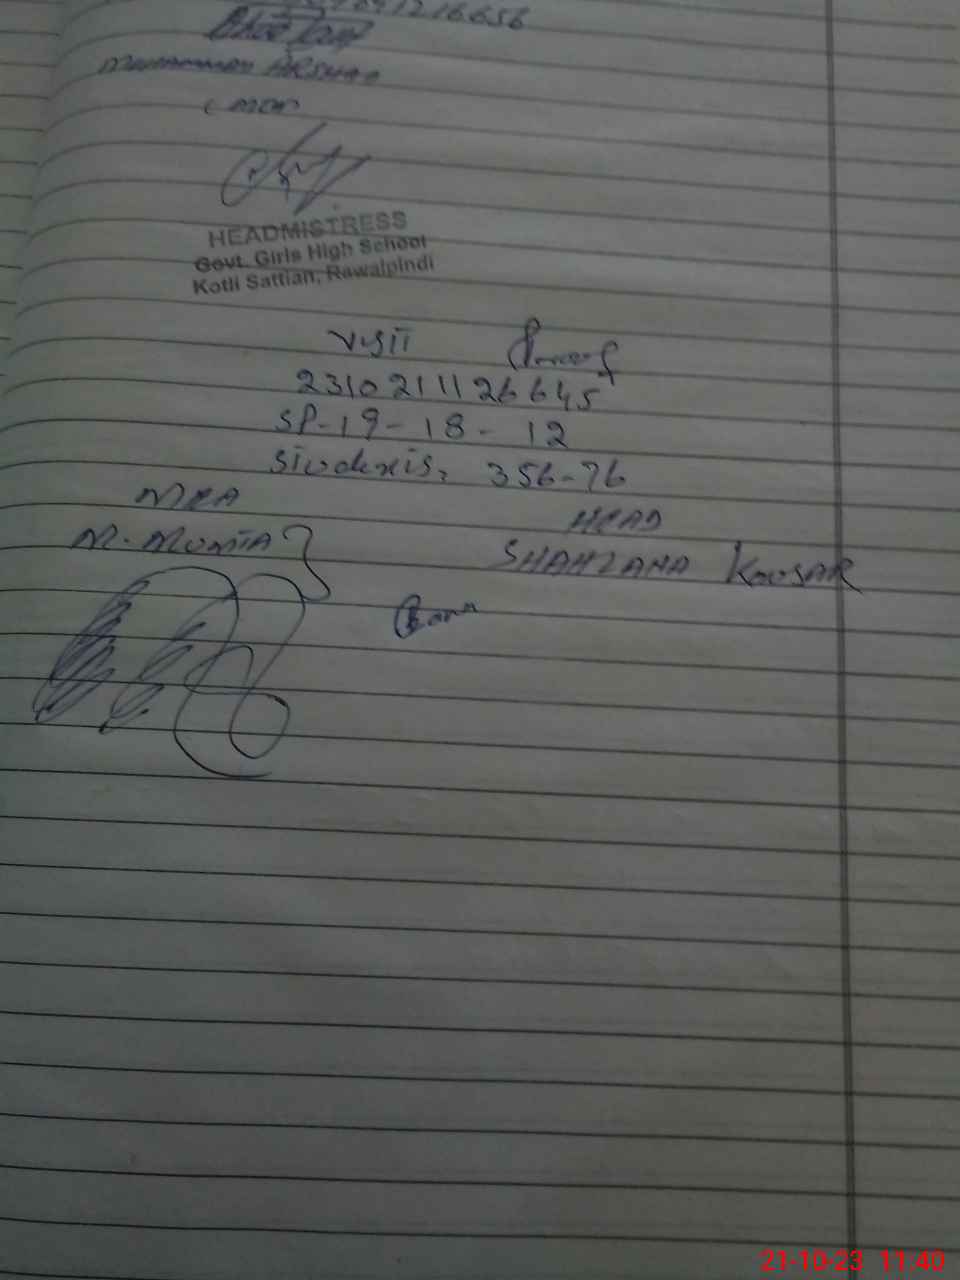 MUHAMMAD ARSHAD
HEADMISTRESS
Govt. Girls High School
Kotli Sattian, Rawalpindi
Visit Proof
2310211126645
SP-19-18-12
Students, 356-76
MEA
HEAD
M. MUMTAZ
SHAHZANA KOUSAR
21-10-23 11:40